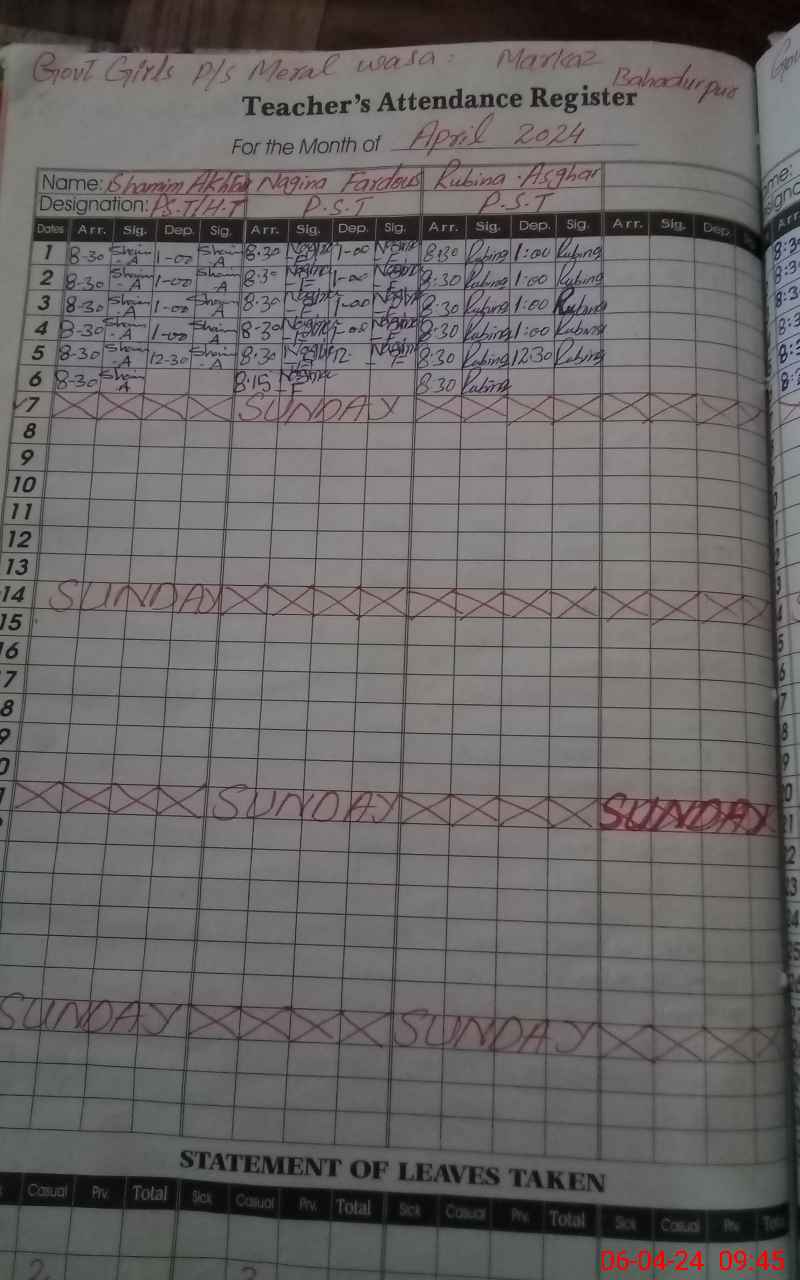 Govt Girls P/s Meral wasa. Markaz Bahadurpur
Teacher's Attendance Register
For the Month of April 2024
Name: Shamim Akhtar Nagina Fardous Rubina Asghar
Designation: PS.T/H.T P.S.T P.S.T
Dates Arr. Sig. Dep. Sig. Arr. Sig. Dep. Sig. Arr. Sig. Dep. Sig. Arr. Sig. Dep.
1 8-30 Sham-A 1-00 Sham-A 8.30 Nagina-F 1-00 Nagina-F 8:30 Rubina 1:00 Rubina
2 8-30 Sham-A 1-00 Sham-A 8.30 Nagina-F 1-00 Nagina-F 8:30 Rubina 1:00 Rubina
3 8-30 Sham-A 1-00 Sham-A 8.30 Nagina-F 1-00 Nagina-F 8.30 Rubina 1:00 Rubina
4 8-30 Sham-A 1-00 Sham-A 8-30 Nagina-F 1-00 Nagina-F 8:30 Rubina 1:00 Rubina
5 8-30 Sham-A 12-30 Sham-A 8-30 Nagina-F 12- Nagina-F 8:30 Rubina 12:30 Rubina
6 8-30 Sham-A 8.15 Nagina-F 8 30 Rubina
7 SUNDAY
8
9
10
11
12
13
14 SUNDAY
15
16
7
8
9
0
SUNDAY SUNDAY
SUNDAY SUNDAY
STATEMENT OF LEAVES TAKEN
Casual Prv. Total Sick Casual Prv. Total Sick Casual Prv. Total Sick Casual Prv.
06-04-24 09:45